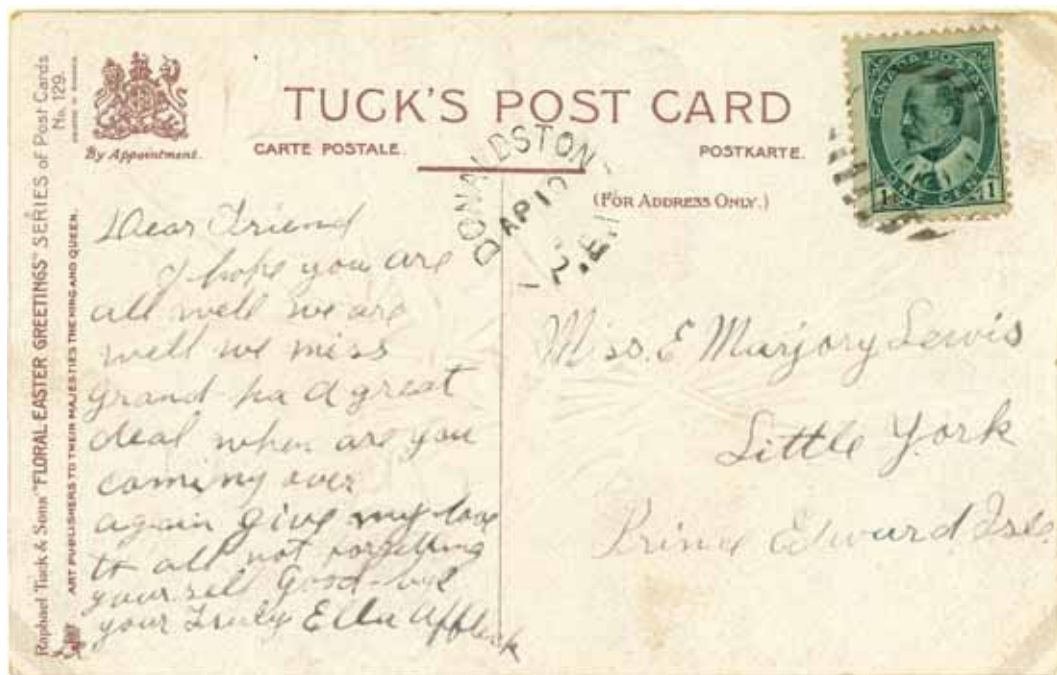 Raphael Tuck & Sons' "FLORAL EASTER GREETINGS" SERIES of Post Cards
No. 129.
ART PUBLISHERS TO THEIR MAJESTIES THE KING AND QUEEN.
By Appointment.
TUCK'S POST CARD
CARTE POSTALE.
POSTKARTE.
(FOR ADDRESS ONLY.)
DONALDSTON
AP 10
P.E.I
CANADA POSTAGE
1 ONE CENT 1
Dear Friend
I hope you are
all well we are
well we miss
Grand pa a great
deal when are you
coming over
again give my love
to all not forgetting
yourself Good-bye
your Truly Ella Affleck
Miss. E Marjory Lewis
Little York
Prince Edward Isl.